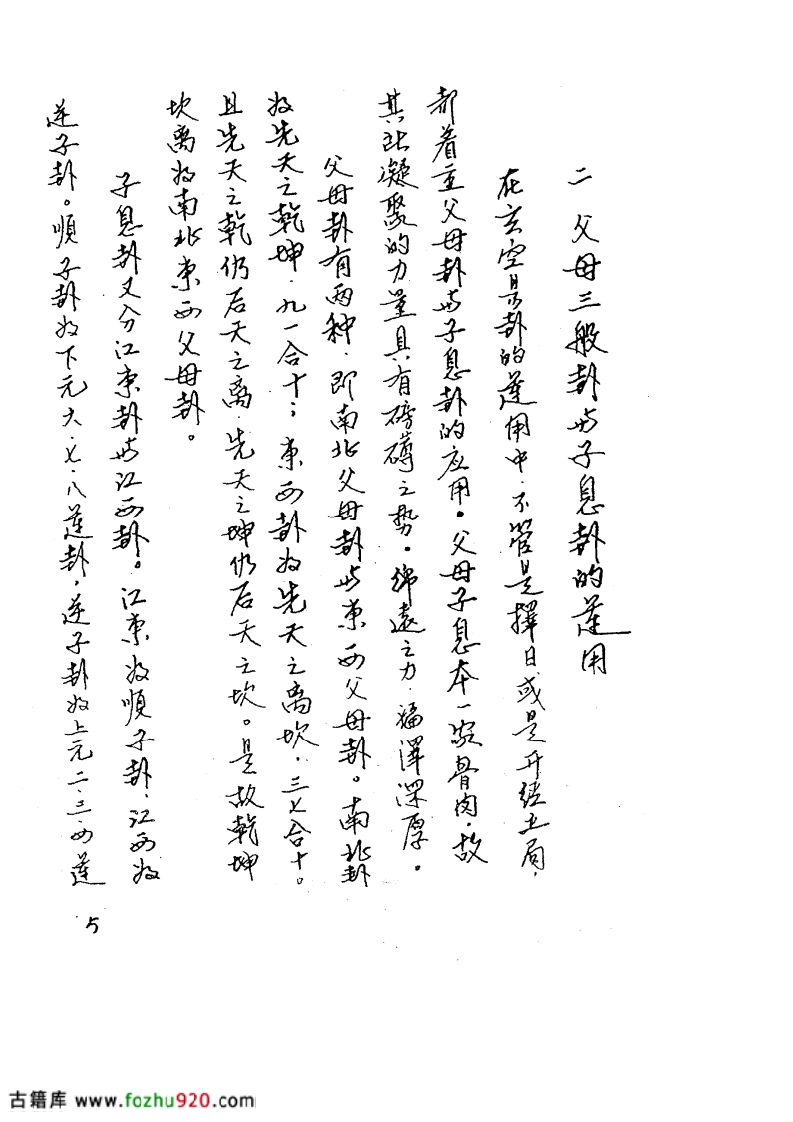 二 父母三般卦与子息卦的運用
在玄空易卦的運用中，不管是擇日或是开经立局，
都着重父母卦与子息卦的应用。父母子息本一家骨肉，故
其能凝聚的力量具有磅礡之势。绵遠之力，福澤深厚。
父母卦有两种，即南北父母卦与東西父母卦。南北卦
为先天之乾坤，九一合十；東西卦为先天之离坎，三七合十。
且先天之乾仍后天之离，先天之坤仍后天之坎。是故乾坤
坎离为南北東西父母卦。
子息卦又分江東卦与江西卦。江東为順子卦，江西为
逆子卦。順子卦为下元六、七、八運卦，逆子卦为上元二、三、四運
5
古籍库 www.fozhu920.com